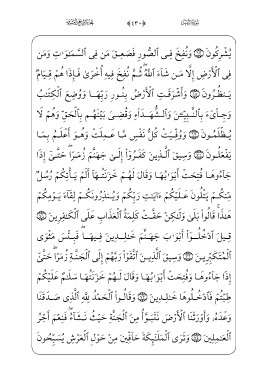 ﴿٤٣٠﴾
يُشْرِكُونَ ۝ وَنُفِخَ فِى ٱلصُّورِ فَصَعِقَ مَن فِى ٱلسَّمَٰوَٰتِ وَمَن
فِى ٱلْأَرْضِ إِلَّا مَن شَآءَ ٱللَّهُ ثُمَّ نُفِخَ فِيهِ أُخْرَىٰ فَإِذَا هُمْ قِيَامٌ
يَنظُرُونَ ۝ وَأَشْرَقَتِ ٱلْأَرْضُ بِنُورِ رَبِّهَا وَوُضِعَ ٱلْكِتَٰبُ
وَجِاْىٓءَ بِٱلنَّبِيِّـۧنَ وَٱلشُّهَدَآءِ وَقُضِىَ بَيْنَهُم بِٱلْحَقِّ وَهُمْ لَا
يُظْلَمُونَ ۝ وَوُفِّيَتْ كُلُّ نَفْسٍ مَّا عَمِلَتْ وَهُوَ أَعْلَمُ بِمَا
يَفْعَلُونَ ۝ وَسِيقَ ٱلَّذِينَ كَفَرُوٓا۟ إِلَىٰ جَهَنَّمَ زُمَرًا حَتَّىٰٓ إِذَا
جَآءُوهَا فُتِحَتْ أَبْوَٰبُهَا وَقَالَ لَهُمْ خَزَنَتُهَآ أَلَمْ يَأْتِكُمْ رُسُلٌ
مِّنكُمْ يَتْلُونَ عَلَيْكُمْ ءَايَٰتِ رَبِّكُمْ وَيُنذِرُونَكُمْ لِقَآءَ يَوْمِكُمْ
هَٰذَا قَالُوا۟ بَلَىٰ وَلَٰكِنْ حَقَّتْ كَلِمَةُ ٱلْعَذَابِ عَلَى ٱلْكَٰفِرِينَ ۝
قِيلَ ٱدْخُلُوٓا۟ أَبْوَٰبَ جَهَنَّمَ خَٰلِدِينَ فِيهَا فَبِئْسَ مَثْوَى
ٱلْمُتَكَبِّرِينَ ۝ وَسِيقَ ٱلَّذِينَ ٱتَّقَوْا۟ رَبَّهُمْ إِلَى ٱلْجَنَّةِ زُمَرًا حَتَّىٰٓ
إِذَا جَآءُوهَا وَفُتِحَتْ أَبْوَٰبُهَا وَقَالَ لَهُمْ خَزَنَتُهَا سَلَٰمٌ عَلَيْكُمْ
طِبْتُمْ فَٱدْخُلُوهَا خَٰلِدِينَ ۝ وَقَالُوا۟ ٱلْحَمْدُ لِلَّهِ ٱلَّذِى صَدَقَنَا
وَعْدَهُۥ وَأَوْرَثَنَا ٱلْأَرْضَ نَتَبَوَّأُ مِنَ ٱلْجَنَّةِ حَيْثُ نَشَآءُ فَنِعْمَ أَجْرُ
ٱلْعَٰمِلِينَ ۝ وَتَرَى ٱلْمَلَٰٓئِكَةَ حَآفِّينَ مِنْ حَوْلِ ٱلْعَرْشِ يُسَبِّحُونَ